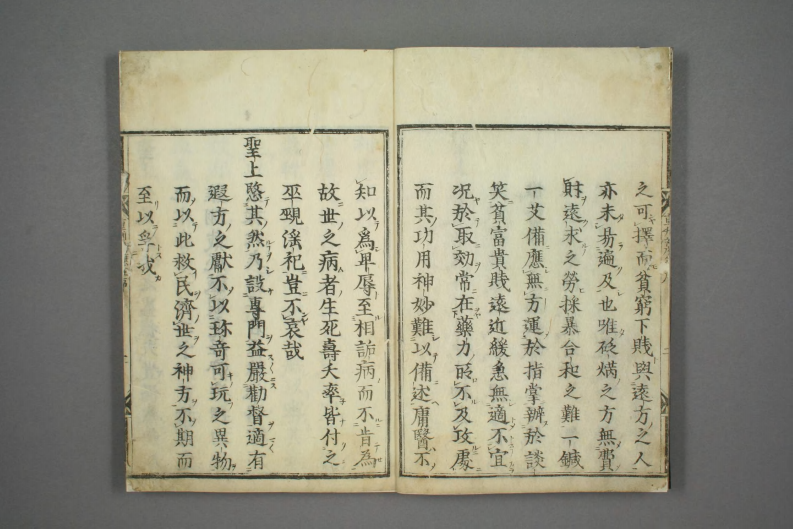 之可擇而貧窮下賤與遠方之人
亦未易遍及也唯砭焫之方無費
財遠求之勞採暴合和之難一鍼
一艾備應無方運於指掌辨於談
笑貧富貴賤遠近緩急無適不宜
況於取効常在藥力所不及攻處
而其功用神妙難以備述庸醫不
知以爲卑辱至相詬病而不肯為
故世之病者生死壽夭率皆付之
巫覡淫祀豈不哀哉
聖上愍其然乃設專門益嚴勸督適有
遐方之獻不以珎奇可玩之異物
而以此救民濟世之神方不期而
至以